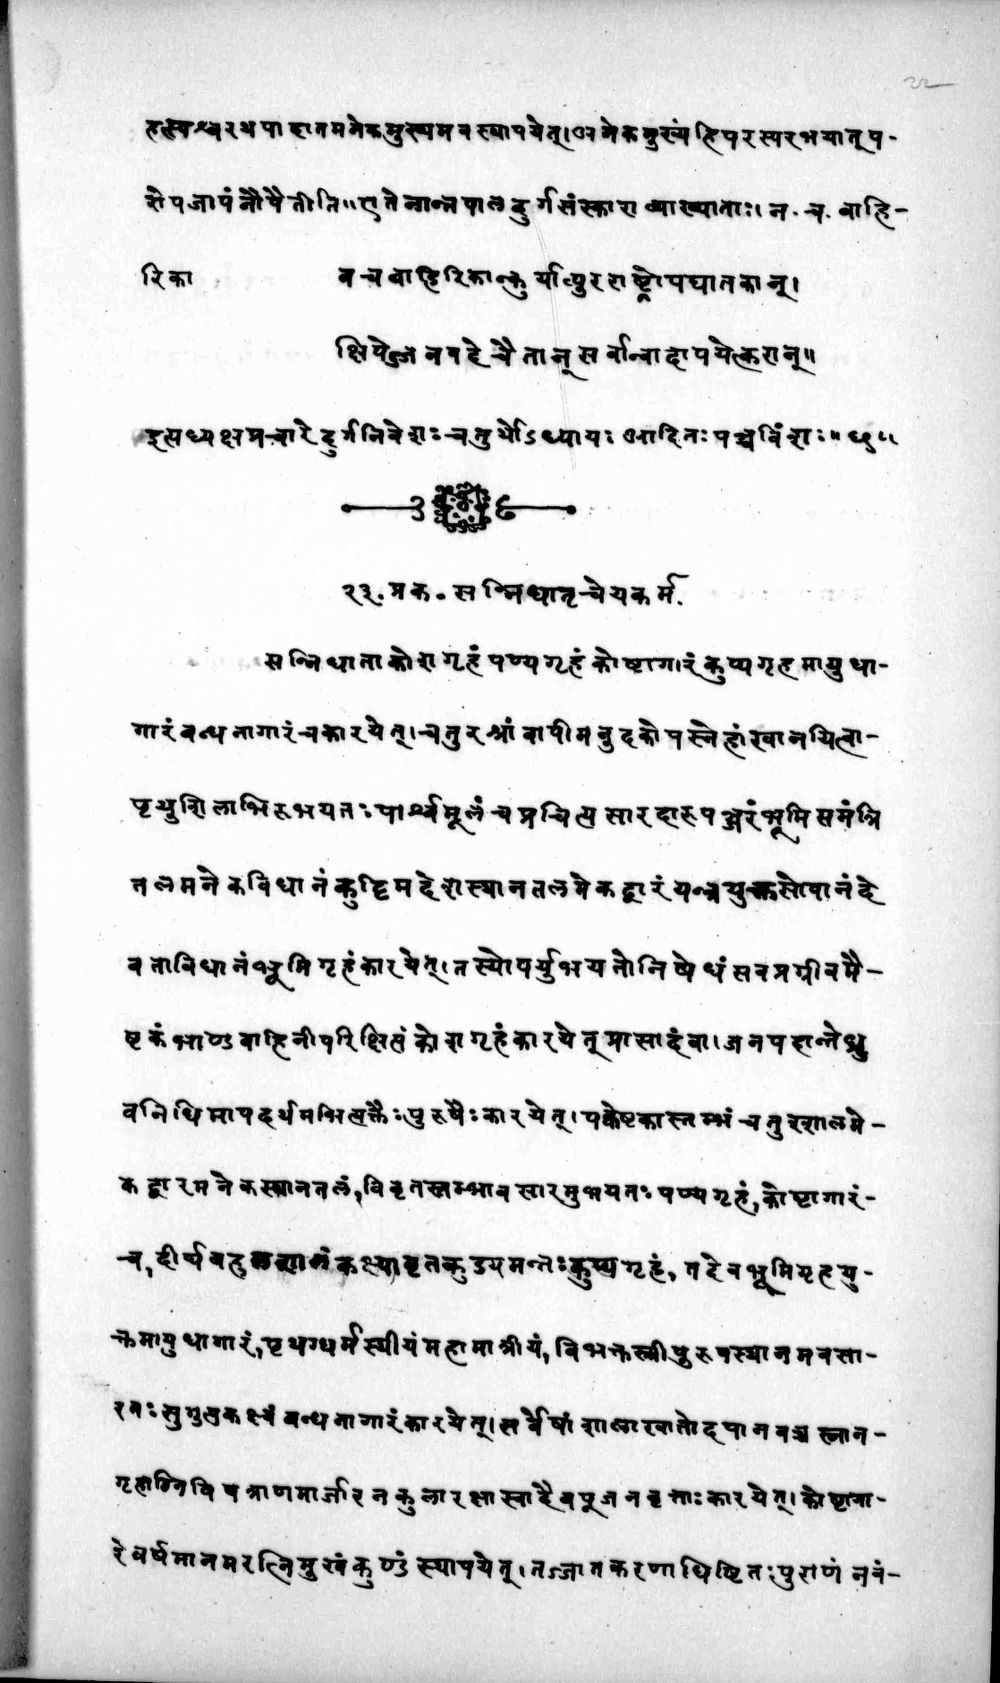 २२
हस्त्यश्वरथपादातमनेकमुख्यमवस्थापयेत्। अनेकमुख्यं हि परस्परभयात् प-
रोपजापं नोपैतीति॥ एतेनान्तपालदुर्गसंस्कारा व्याख्याताः। न च वाहि-
रिका नचवाहिरिकान्कुर्यात्पुरराष्ट्रोपघातकान्।
क्षिपेज्जनपदे चैतान् सर्वान्वा दापयेत्करान्॥
इत्यध्यक्षप्रचारे दुर्गनिवेशः चतुर्थोऽध्यायः आदितः पञ्चविंशः॥
२३. प्रक. सन्निधातृचेयकर्म.
सन्निधाता कोशगृहं पण्यगृहं कोष्ठागारं कुप्यगृहमायुधा-
गारं बन्धनागारं च कारयेत्। चतुरश्रां वापीमनुदकोपस्नेहां खानयित्वा-
पृथुशिलाभिरुभयतः पार्श्वमूलं च प्रचित्य सारदारुपञ्जरं भूमिसमं त्रि
तलमनेकविधानं कुट्टिमदेशस्थानतलमेकद्वारं यन्त्रयुक्तसोपानं दे
वताविधानं भूमिगृहं कारयेत्। तस्योपर्युभयतोनिषेधं सवप्रग्रीवमै-
ष्टकं भाण्डवाहिनीपरिक्षिप्तं कोशगृहं कारयेत् प्रासादं वा। जनपदान्ते ध्रु
वनिधिमापदर्थमभित्यक्तैः पुरुषैः कारयेत्। पक्वेष्टकास्तम्भं चतुश्शालमे-
कद्वारमनेकस्थानतलं, विवृतस्तम्भावसारमुभयतः पण्यगृहं, कोष्ठागारं-
च, दीर्घबहुलशालं कक्ष्यावृतकुड्यमन्तः कुप्यगृहं, तदेव भूमिगृहयु-
क्तमायुधागारं, पृथग्धर्मस्थीयं महामात्रीयं, विभक्तस्त्रीपुरुषस्थानमवसा-
रतः सुगुप्तकक्ष्यं बन्धनागारं कारयेत्। सर्वेषां शालाखातोदपानवच्च स्नान-
गृहाग्निविषत्राणमार्जारनकुलारक्षास्वदैवपूजनवृत्ताः कारयेत्। कोष्ठागा-
रे वर्षमानमरत्निमुखं कुण्डं स्थापयेत्। तज्जातकरणाधिष्ठितः पुराणं नवं-